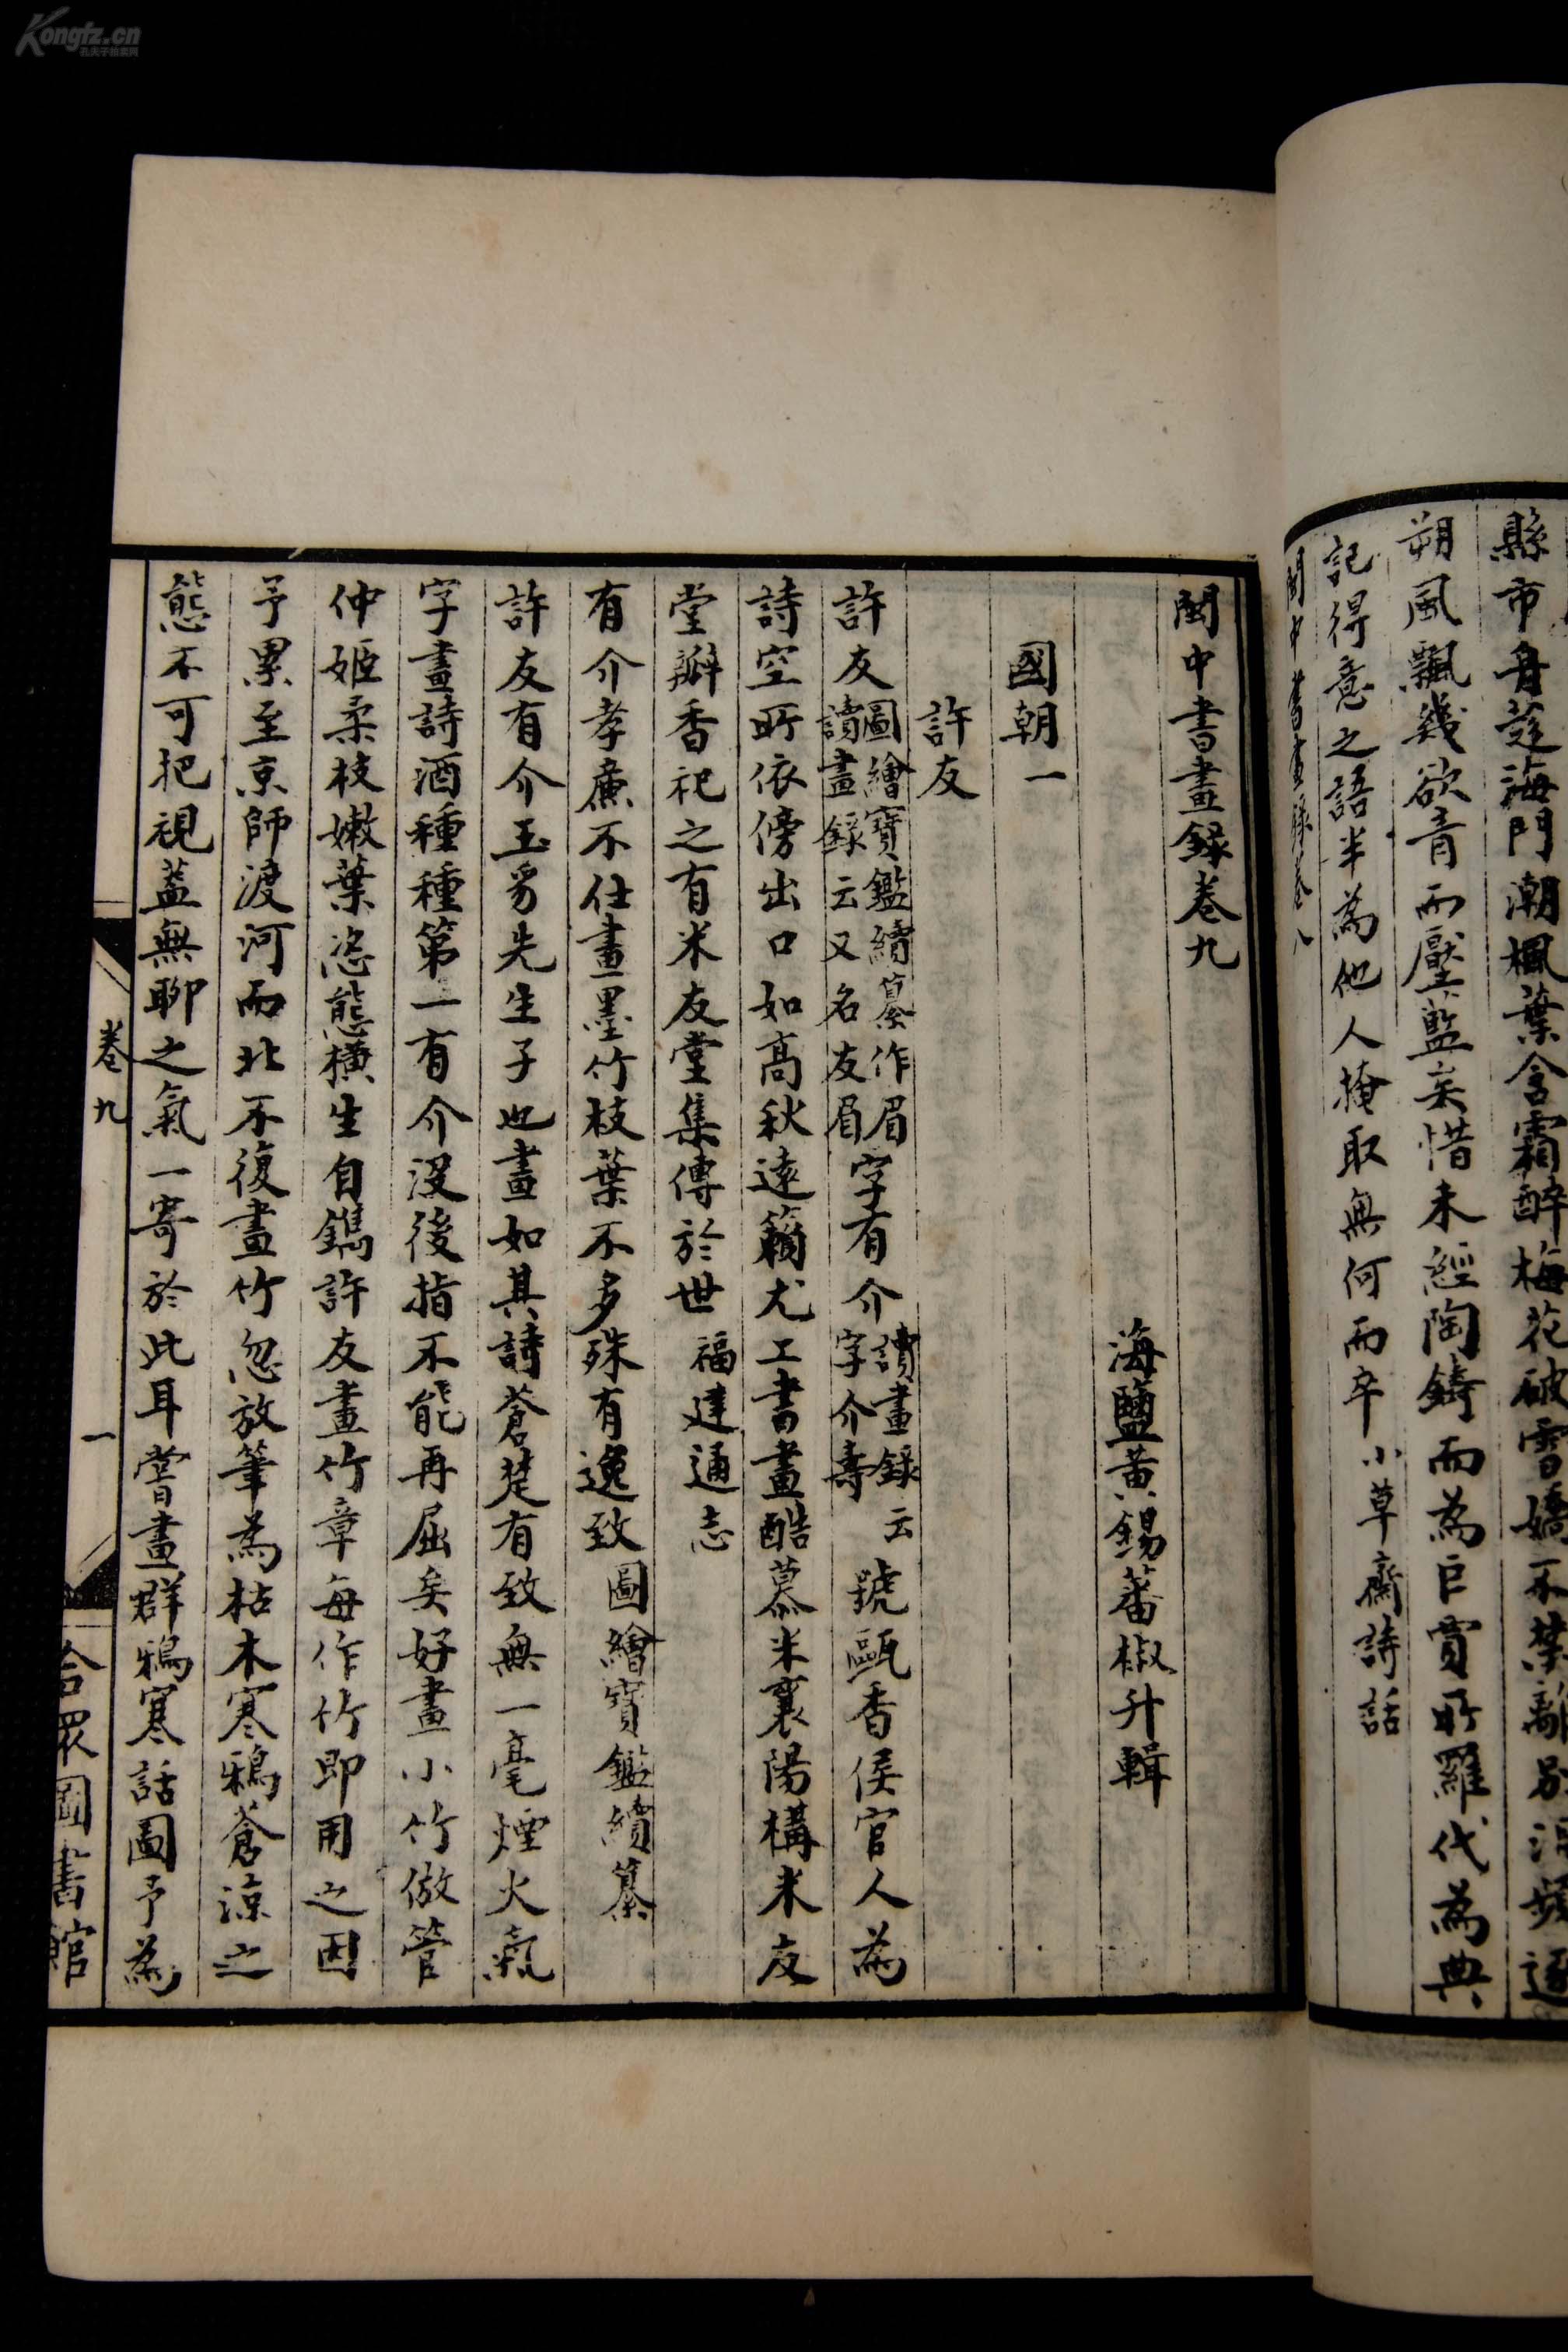 縣市舟趍海門潮楓葉含霜醉梅花破雪嬌不禁離別淚
朔風飄幾欲青而壓藍矣惜未經陶鑄而為巨賈所羅代為典
記得意之語半為他人掩取無何而卒小草齋詩話
閩中書畫錄卷八
閩中書畫錄卷九
海鹽黃錫蕃椒升輯
國朝一
許友
許友圖繪寶鑑續纂作眉讀畫錄云又名友眉字有介讀畫錄云字介壽號甌香侯官人為
詩空所依傍出口如高秋遠籟尤工書畫酷慕米襄陽構米友
堂瓣香祀之有米友堂集傳於世福建通志
有介孝廉不仕畫墨竹枝葉不多殊有逸致圖繪寶鑑續纂
許友有介玉豸先生子也畫如其詩蒼楚有致無一毫煙火氣
字畫詩酒種種第一有介沒後指不能再屈矣好畫小竹倣管
仲姬柔枝嫩葉恣態橫生自鐫許友畫竹章每作竹即用之因
予累至京師渡河而北不復畫竹忽放筆為枯木寒鴉蒼涼之
態不可把視蓋無聊之氣一寄於此耳嘗畫群鴉寒話圖予為
卷九
一
合眾圖書館
Kongfz.cn
孔夫子舊書網